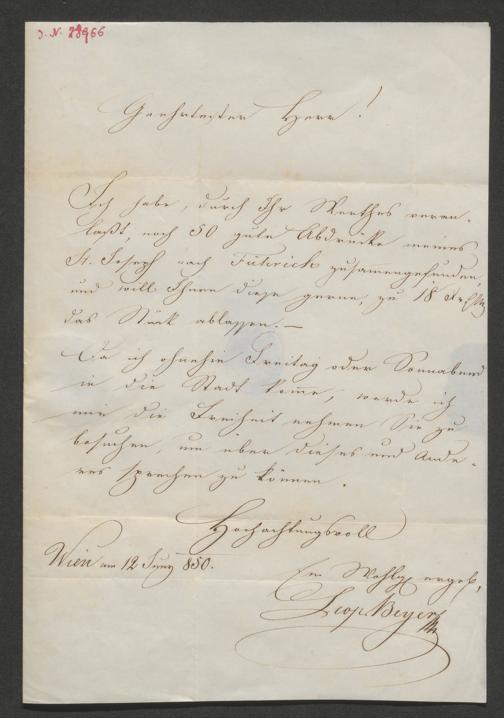 J. N.
Geehrtester Herr!
Ich habe, durch Ihr Werthes veran-
laßt, noch 50 gute Abdrücke meines
St. Joseph nach Führich zusammengefunden,
und will Ihnen diese gerne, zu 18
das Stück ablassen. —
Da ich ohnehin Freitag oder Sonnabend
in die Stadt komme, werde ich
mir die Freiheit nehmen Sie zu
besuchen, um über dieses und Ande-
res sprechen zu können.
Hochachtungsvoll
Wien am 12 Juny 850.
Eu Wohlg ergeb,
Leop Beyer